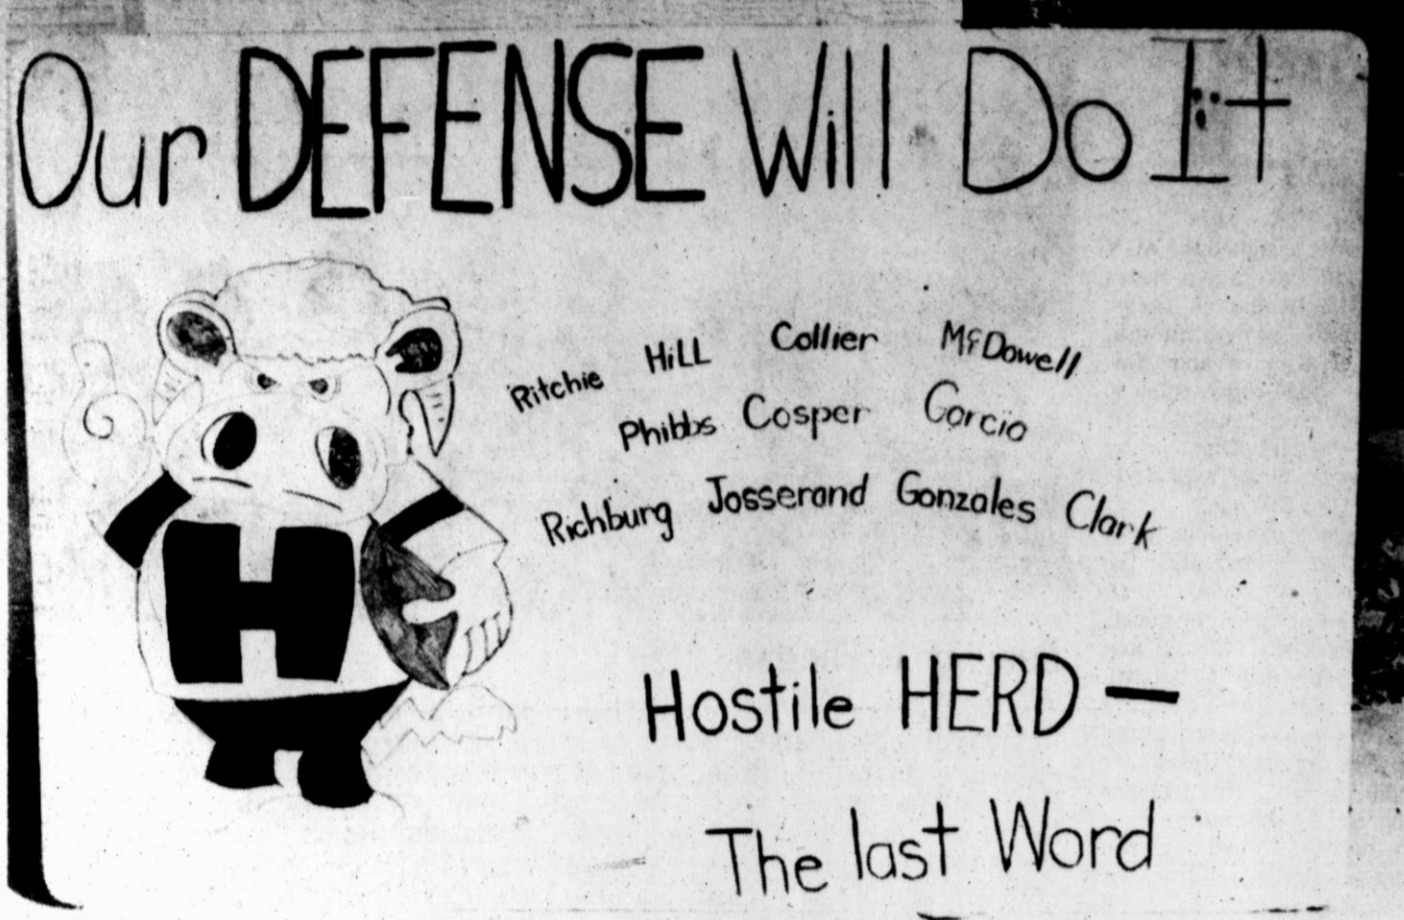 Our DEFENSE Will Do It
Ritchie HiLL Collier McDowell
Phibbs Cosper Garcia
Richburg Josserand Gonzales Clark
H
Hostile HERD —
The last Word